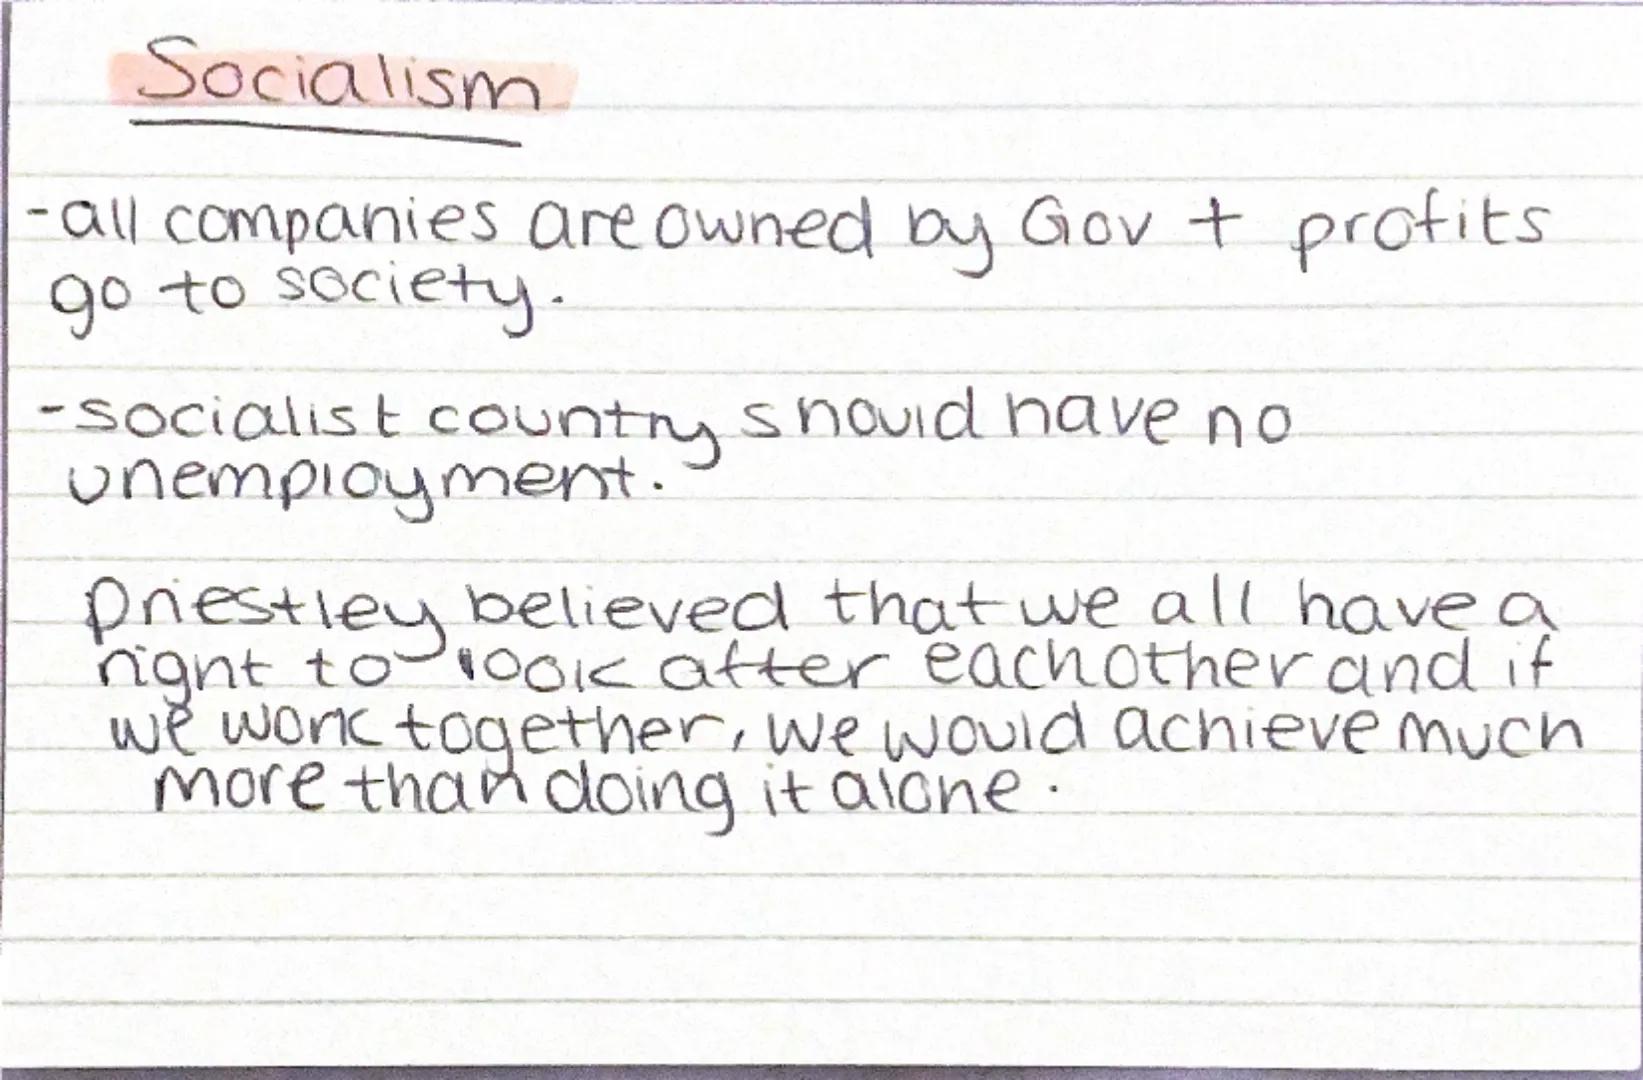 Socialism
-all companies are owned by Gov + profits
go to society.
-socialist country should have no
unemployment.
Priestley believed that we all have a
right to look after eachother and if
we work together, we would achieve much
more than doing it alone.